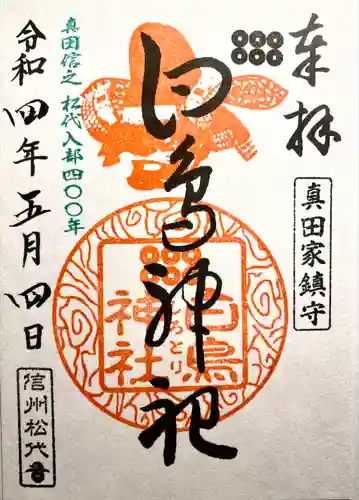 奉拝
真田家鎮守
白鳥神社
白鳥
神社
しろとり
真田信之 松代入部四〇〇年
令和四年五月四日
信州松代